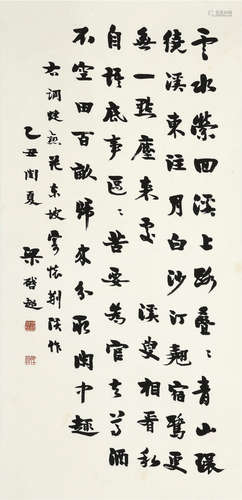 雲水縈回溪上路疊〻青山環
繞溪東注月白沙汀翹宿鷺更
無一點塵來處 溪叟相看私
自語底事區〻苦要為官去尊酒
不空田百畝歸來分取閒中趣
右調蝶戀花東坡懷荊溪作
乙丑閏夏
梁啟超